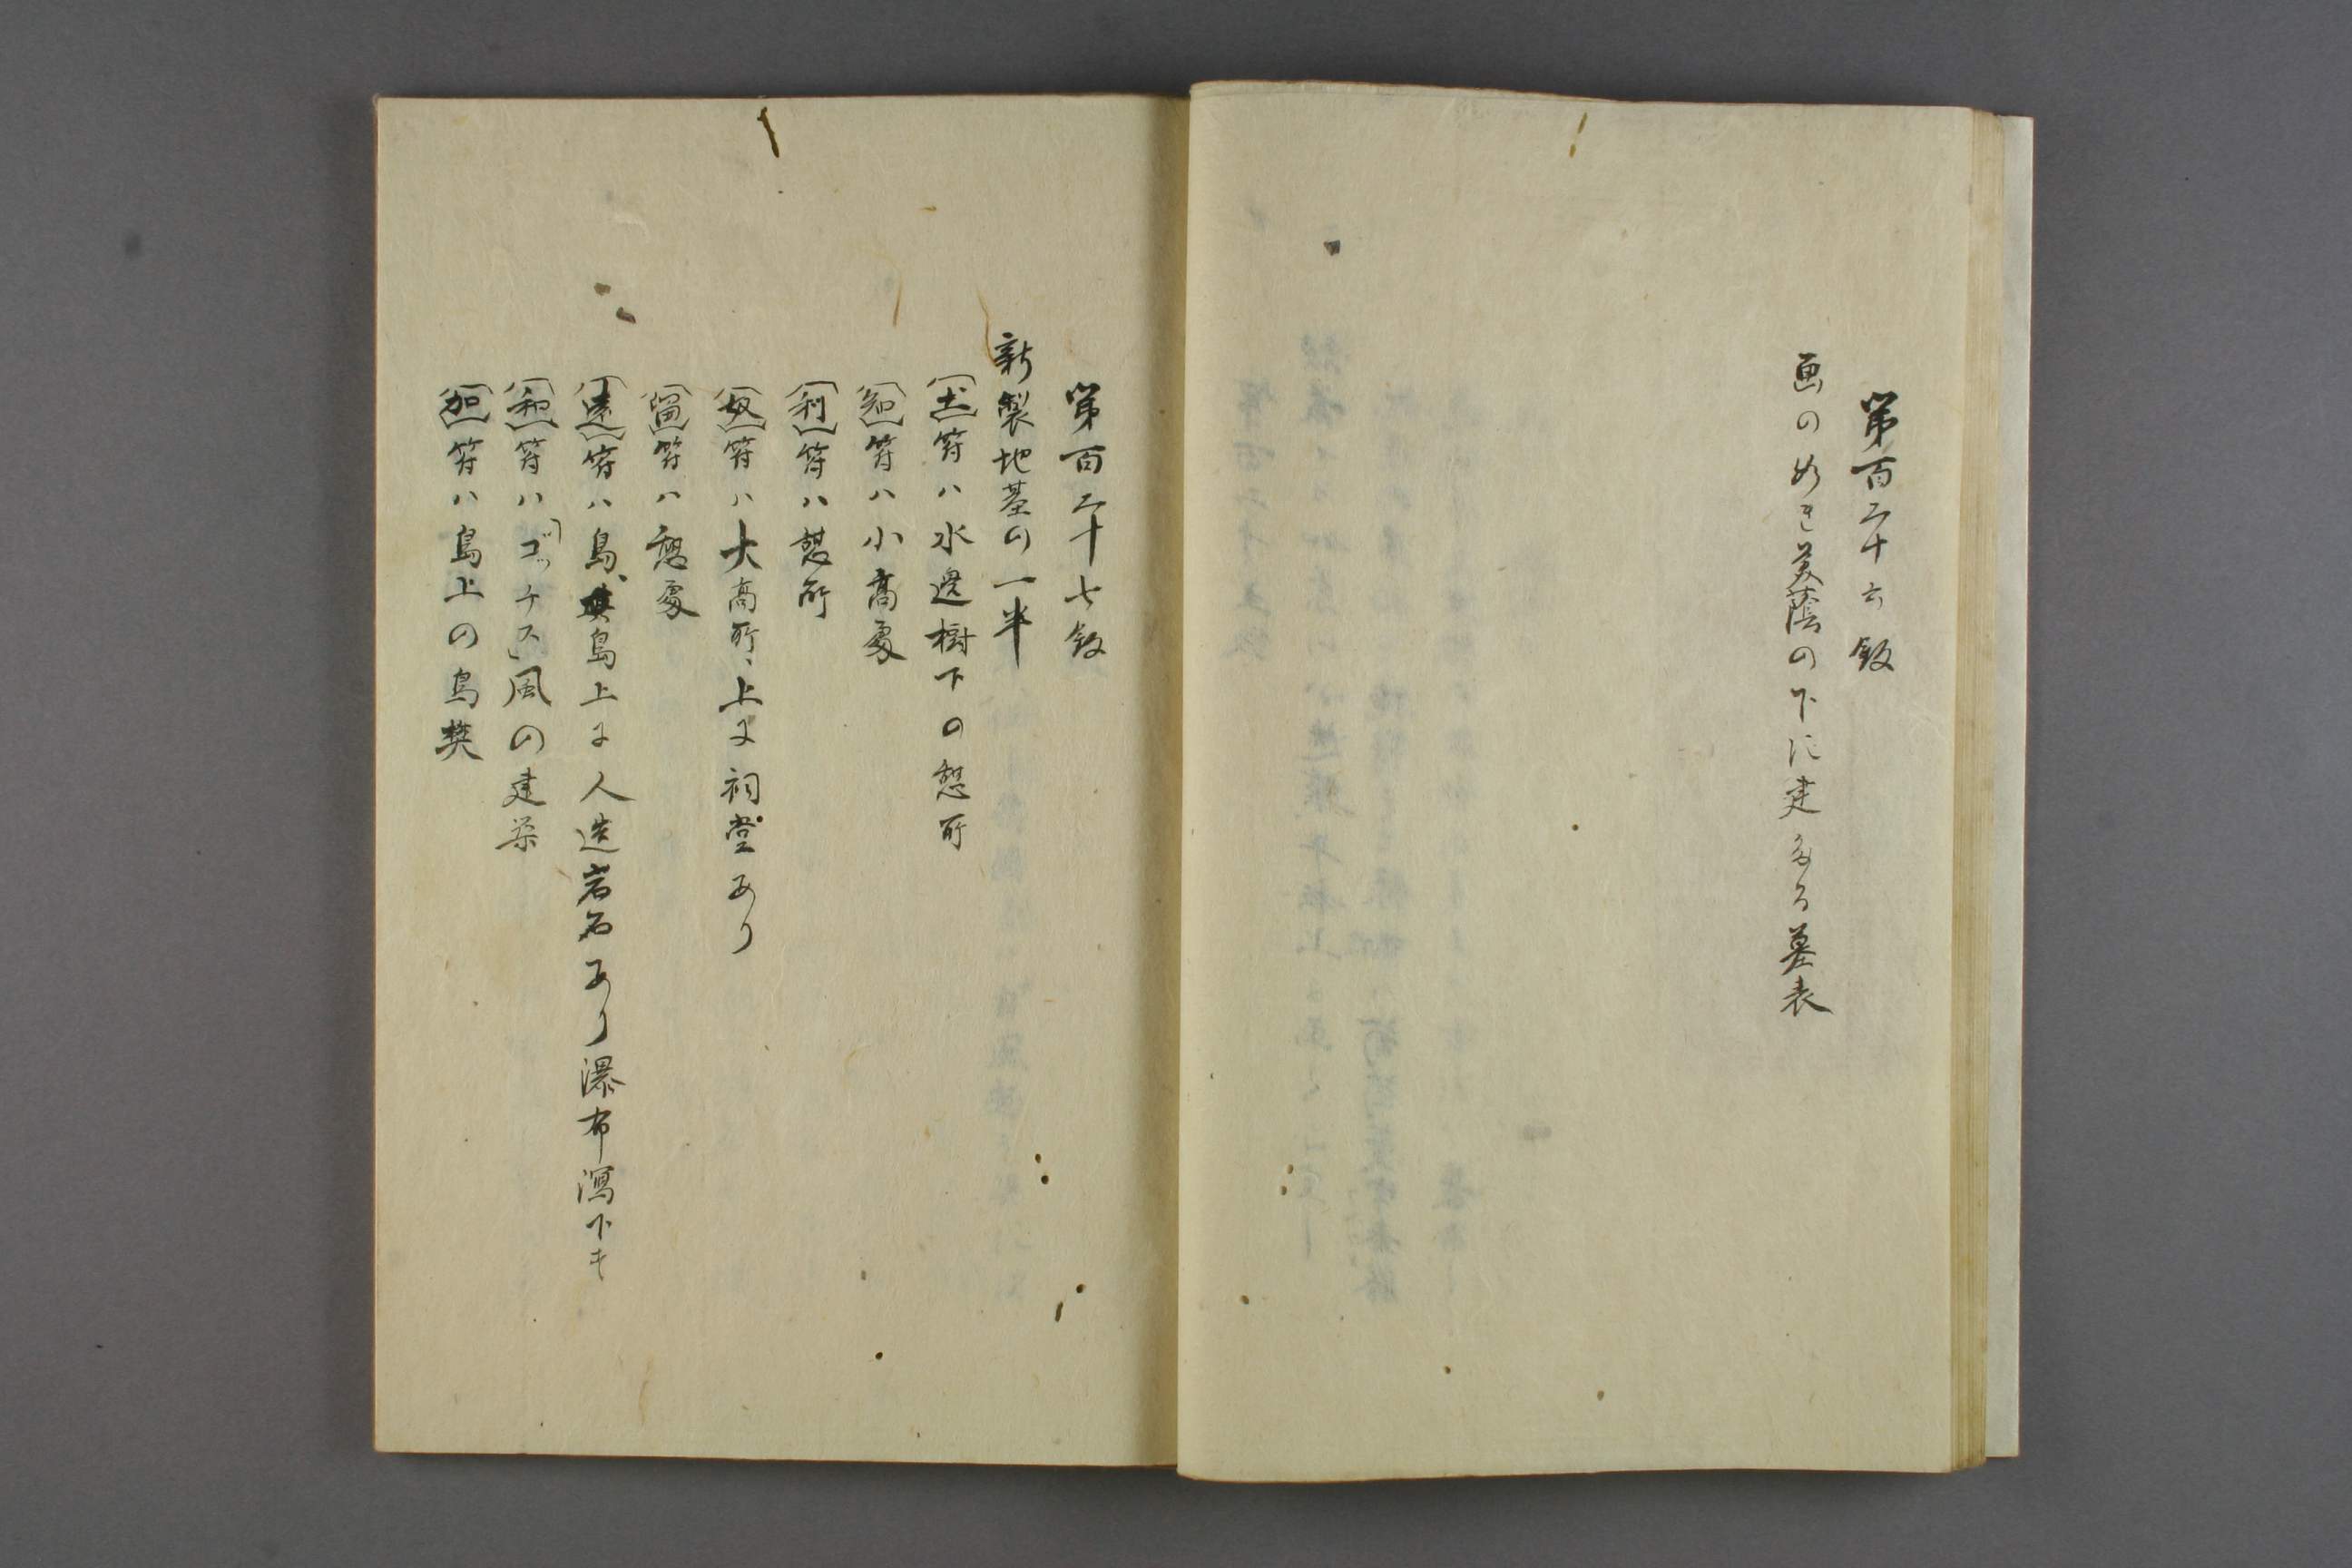 第百二十六級
画の如き美蔭の下に建たる墓表
第百二十七級
新製地基の一半
〔土〕符ハ水邊樹下の憇所
〔知〕符ハ小髙處
〔利〕符ハ憇所
〔奴〕符ハ大高所、上に祠堂あり
〔留〕符ハ憩處
〔遠〕符ハ島、島上に人造岩石あり瀑布瀉下す
〔和〕符ハ「ゴッチス」風の建築
〔加〕符ハ島上の鳥獎